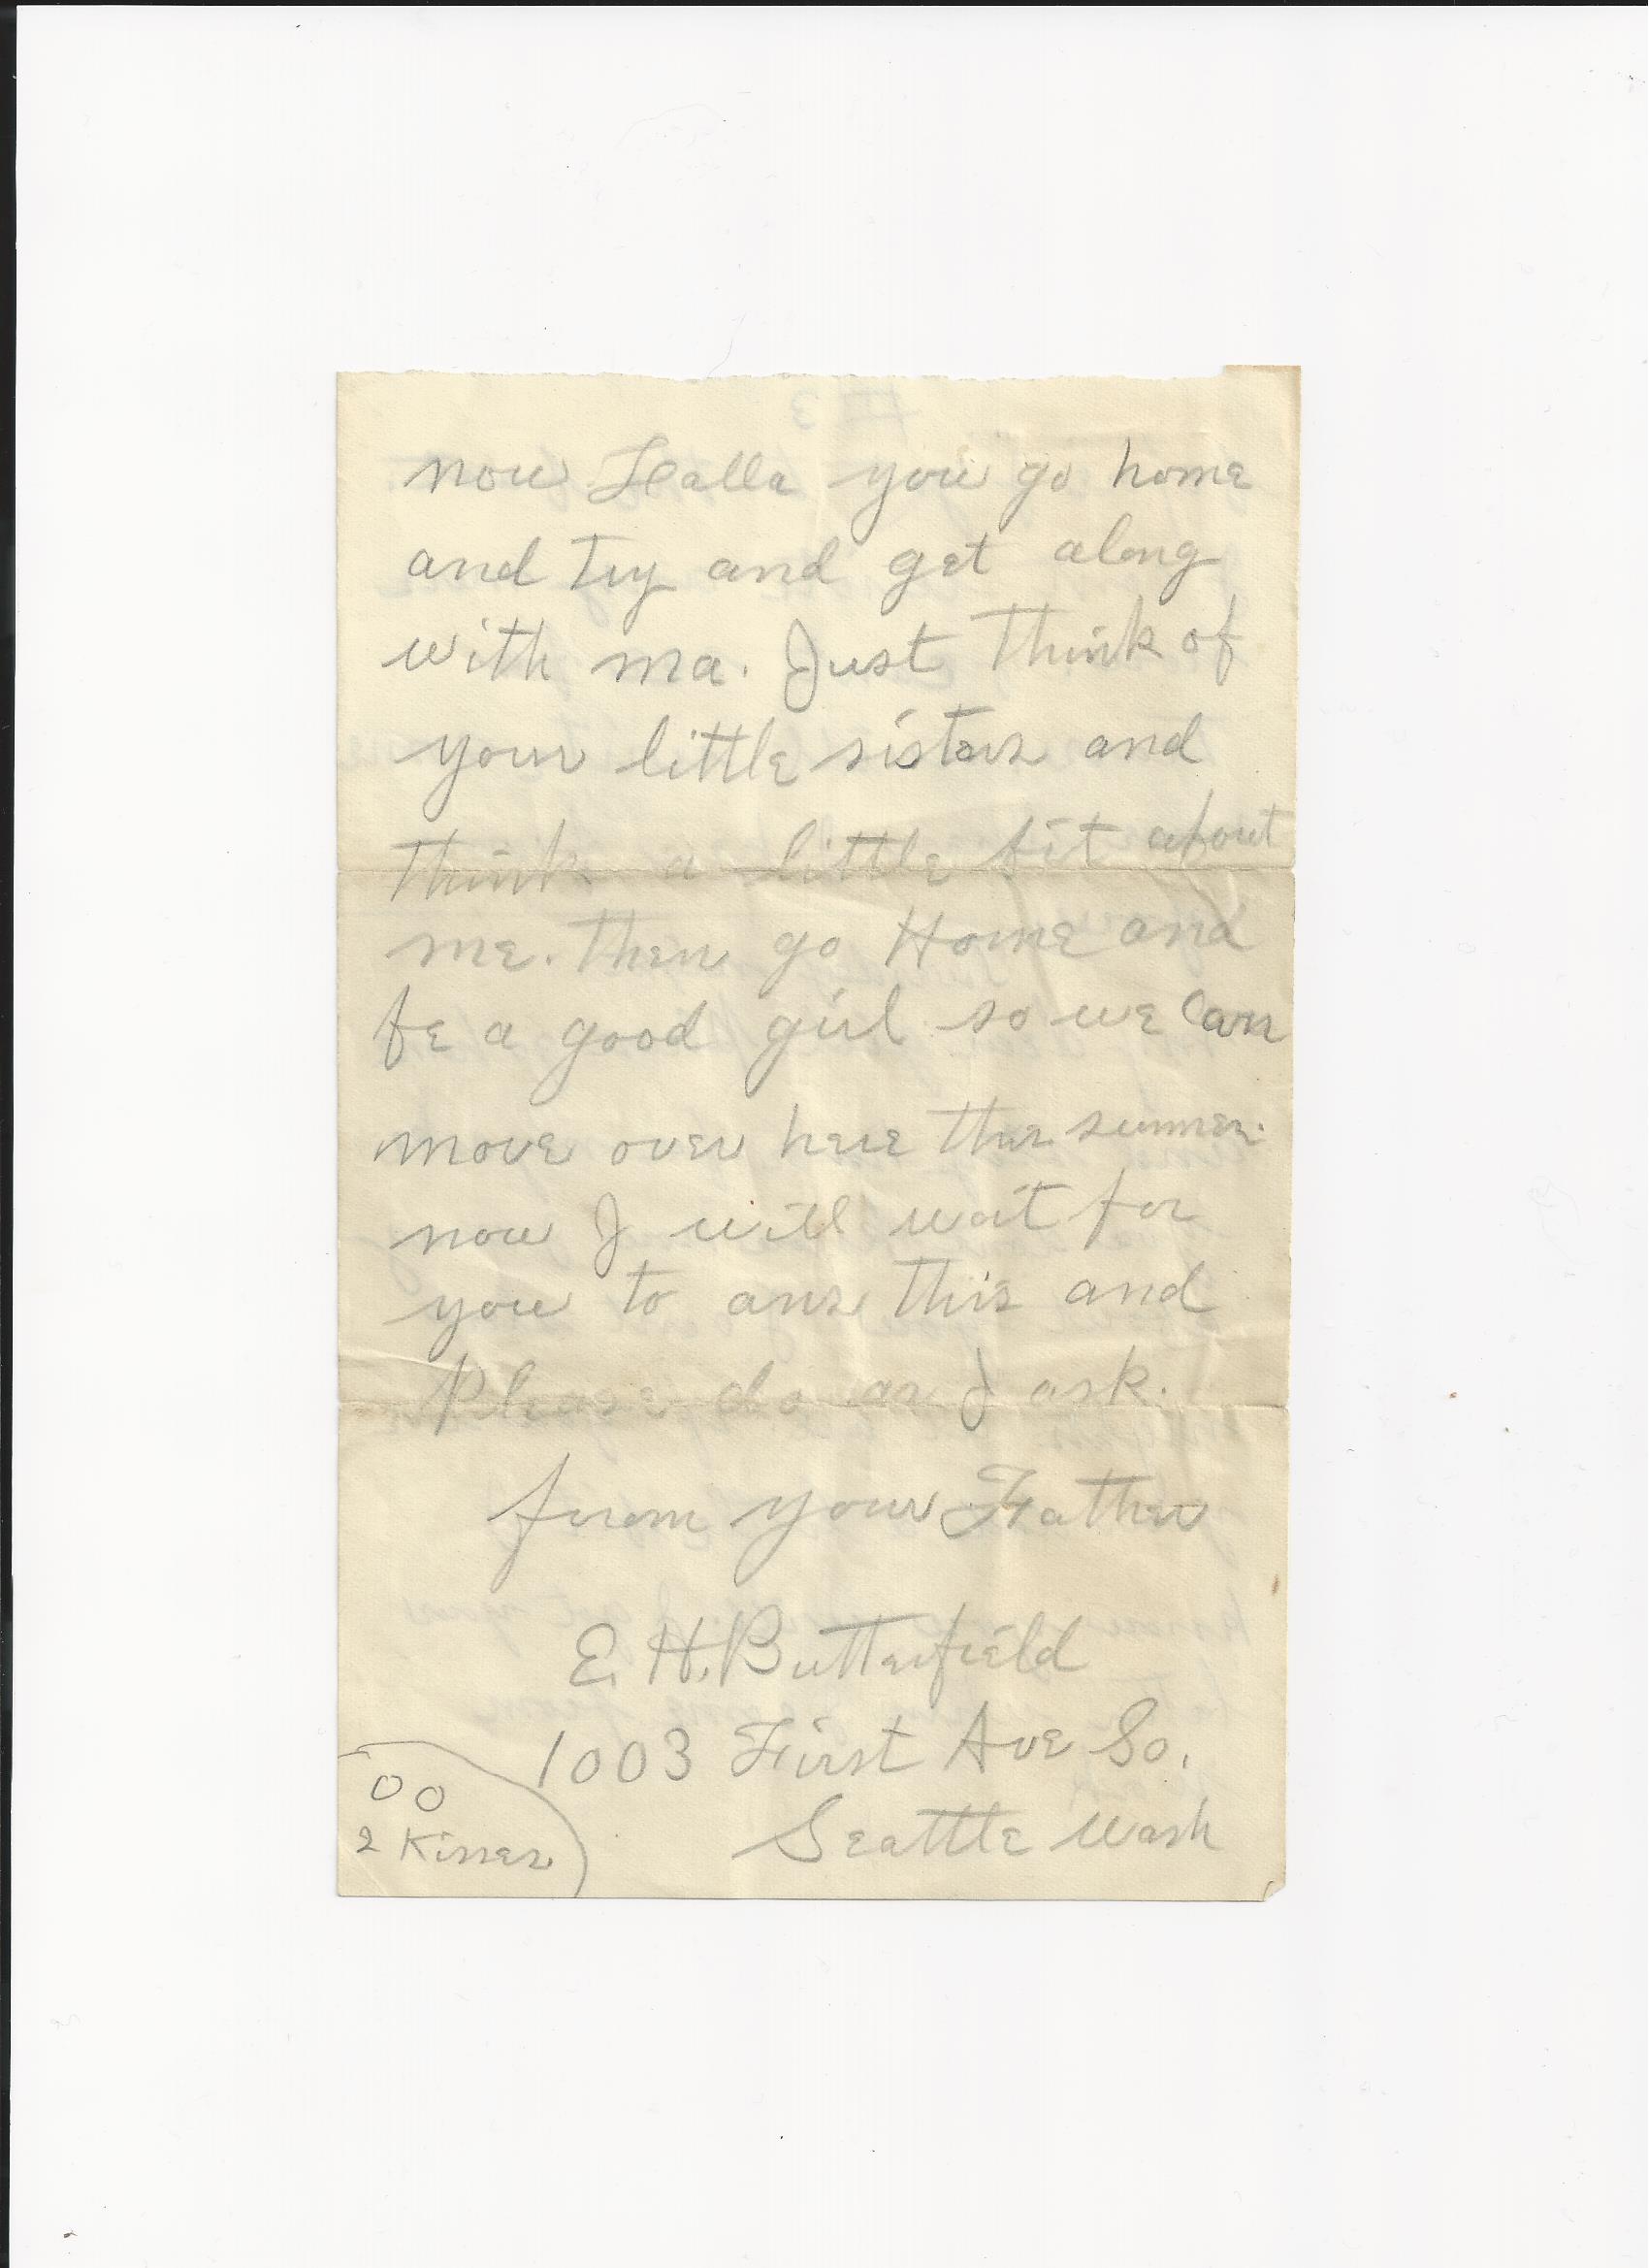 now Lealla you go home
and try and get along
with ma. Just think of
your little sisters and
think a little bit about
me. then go Home and
be a good girl so we Can
move over here this summer.
now I will wait for
you to ans this and
Please do as I ask.
from your Father
E. H. Butterfield
1003 First Ave So.
Seattle Wash
O O
2 Kisses